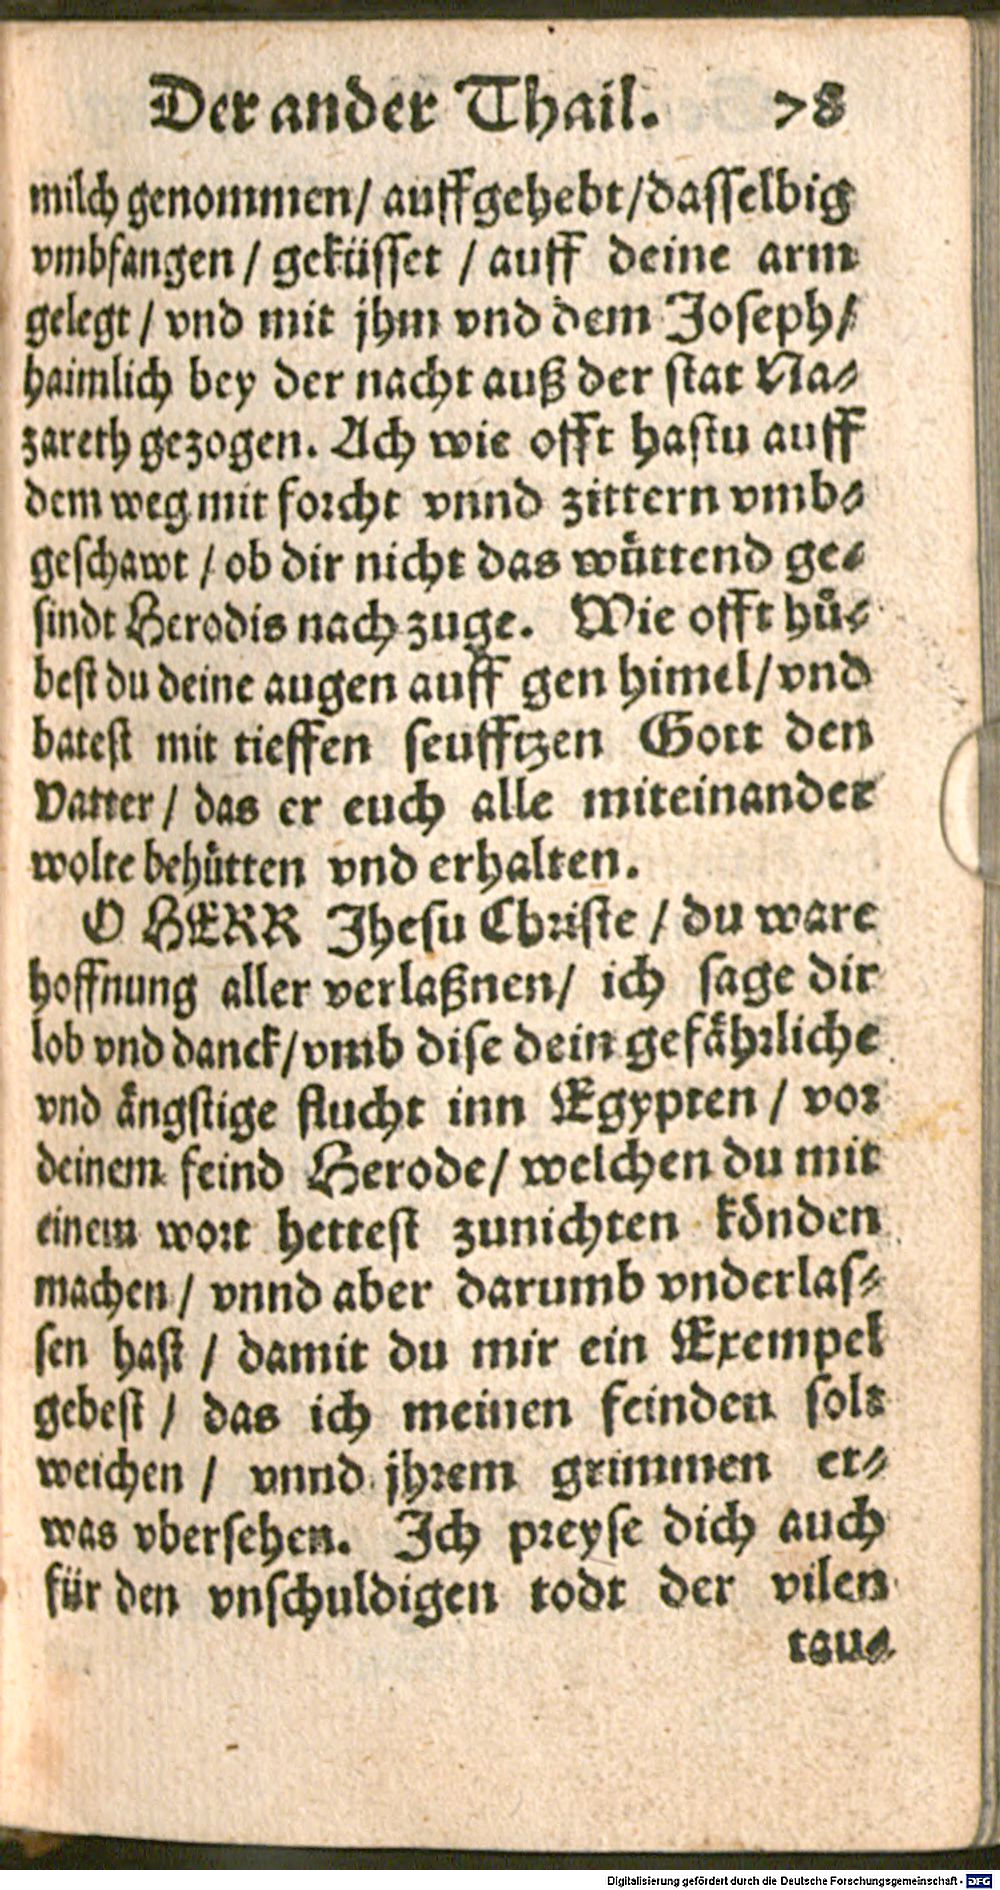 Der ander Thail. 78
milch genommen/ auffgehebt/dasselbig
vmbfangen / geküsset / auff deine arm
gelegt / vnd mit jhm vnd dem Joseph/
haimlich bey der nacht auß der stat Na-
zareth gezogen. Ach wie offt hastu auff
dem weg mit forcht vnnd zittern vmb-
geschawt / ob dir nicht das wůttend ge-
sindt Herodis nach zuge. Wie offt hů-
best du deine augen auff gen himel/ vnd
batest mit tieffen seufftzen Gott den
Vatter / das er euch alle miteinander
wolte behůtten vnd erhalten.
O HERR Jhesu Christe / du ware
hoffnung aller verlaßnen/ ich sage dir
lob vnd danck/ vmb dise dein gefåhrliche
vnd ångstige flucht inn Egypten / vor
deinem feind Herode/ welchen du mit
einem wort hettest zunichten kőnden
machen / vnnd aber darumb vnderlas-
sen hast / damit du mir ein Exempel
gebest / das ich meinen feinden soll
weichen / vnnd jhrem grimmen et-
was vbersehen. Ich preyse dich auch
für den vnschuldigen todt der vilen
tau-
Digitalisierung gefördert durch die Deutsche Forschungsgemeinschaft - DFG